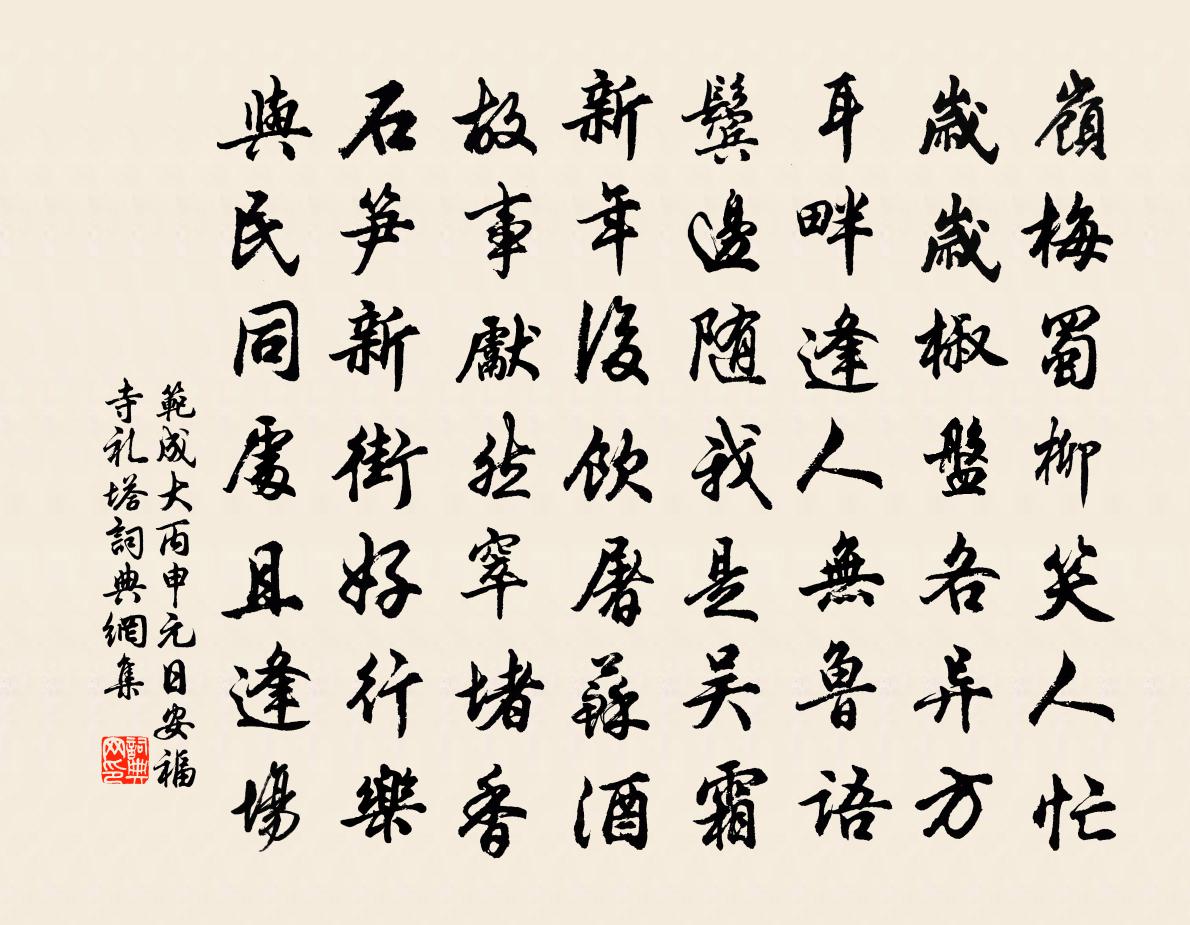 嶺梅蜀柳笑人忙
歲歲椒盤各异方
耳畔逢人無魯語
鬢邊隨我是吴霜
新年後飲屠蘇酒
故事獻然窣堵香
石笋新街好行樂
與民同處且逢場
範成大丙申元日安福
寺礼塔詞典網集
詞典网印